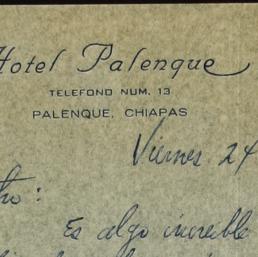 Hotel Palenque
TELEFONO NUM. 13
PALENQUE, CHIAPAS
Viernes 24
Es algo increible